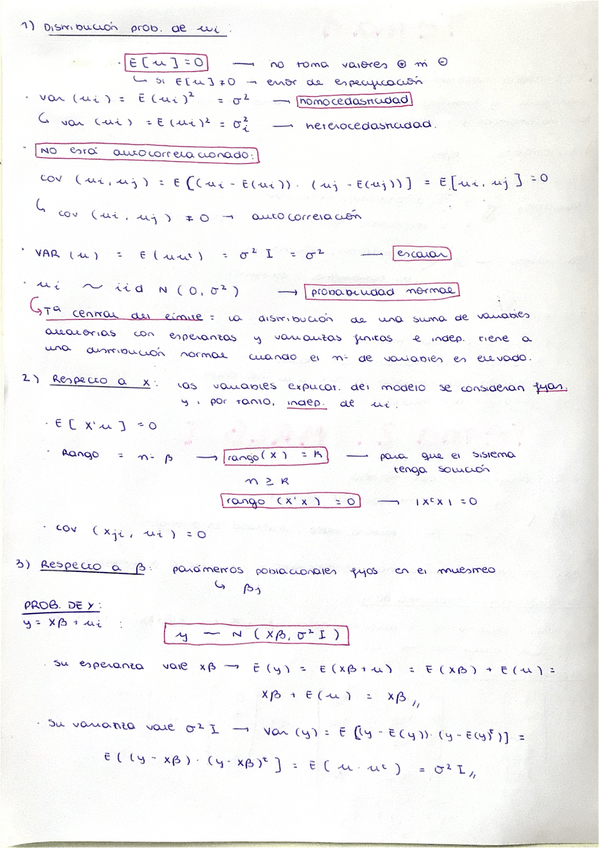 1) Distribución prob. de ui :
· E[u] = 0 → no toma valores ⊕ ni ⊖
↳ si E[u] ≠ 0 → error de especificación
· var (ui) = E(ui)² = σ² → homocedasticidad
↳ var (ui) = E(ui)² = σ²i → heterocedasticidad.
· No está autocorrelacionado:
cov (ui, uj) = E[(ui - E(ui)) · (uj - E(uj))] = E[ui, uj] = 0
↳ cov (ui, uj) ≠ 0 → autocorrelación
· VAR (u) = E(uuᵗ) = σ² I = σ² → escalar
· ui ~ iid N(0, σ²) → probabilidad normal
↳ Tª central del límite: la distribución de una suma de variables
aleatorias con esperanzas y varianzas finitas e indep. tiene a
una distribución normal cuando el nº de variables es elevado.
2) Respecto a X: las variables explicat. del modelo se consideran fijas.
y, por tanto, indep. de ui.
· E[X'u] = 0
· Rango = nº β → rango(X) = K → para que el sistema
tenga solución
n ≥ K
rango (X'X) = 0 → |XᵗX| = 0
· cov (xji, ui) = 0
3) Respecto a β: parámetros poblacionales fijos en el muestreo
↳ βj
PROB. DE Y:
y = Xβ + ui :
y ~ N (Xβ, σ² I)
· Su esperanza vale Xβ → E(y) = E(Xβ+u) = E(Xβ) + E(u) =
Xβ + E(u) = Xβ,,
· Su varianza vale σ² I → Var (y) = E[(y - E(y)) · (y - E(y)ᵗ)] =
E((y - Xβ) · (y - Xβ)ᵗ] = E[u · uᵗ) = σ² I,,